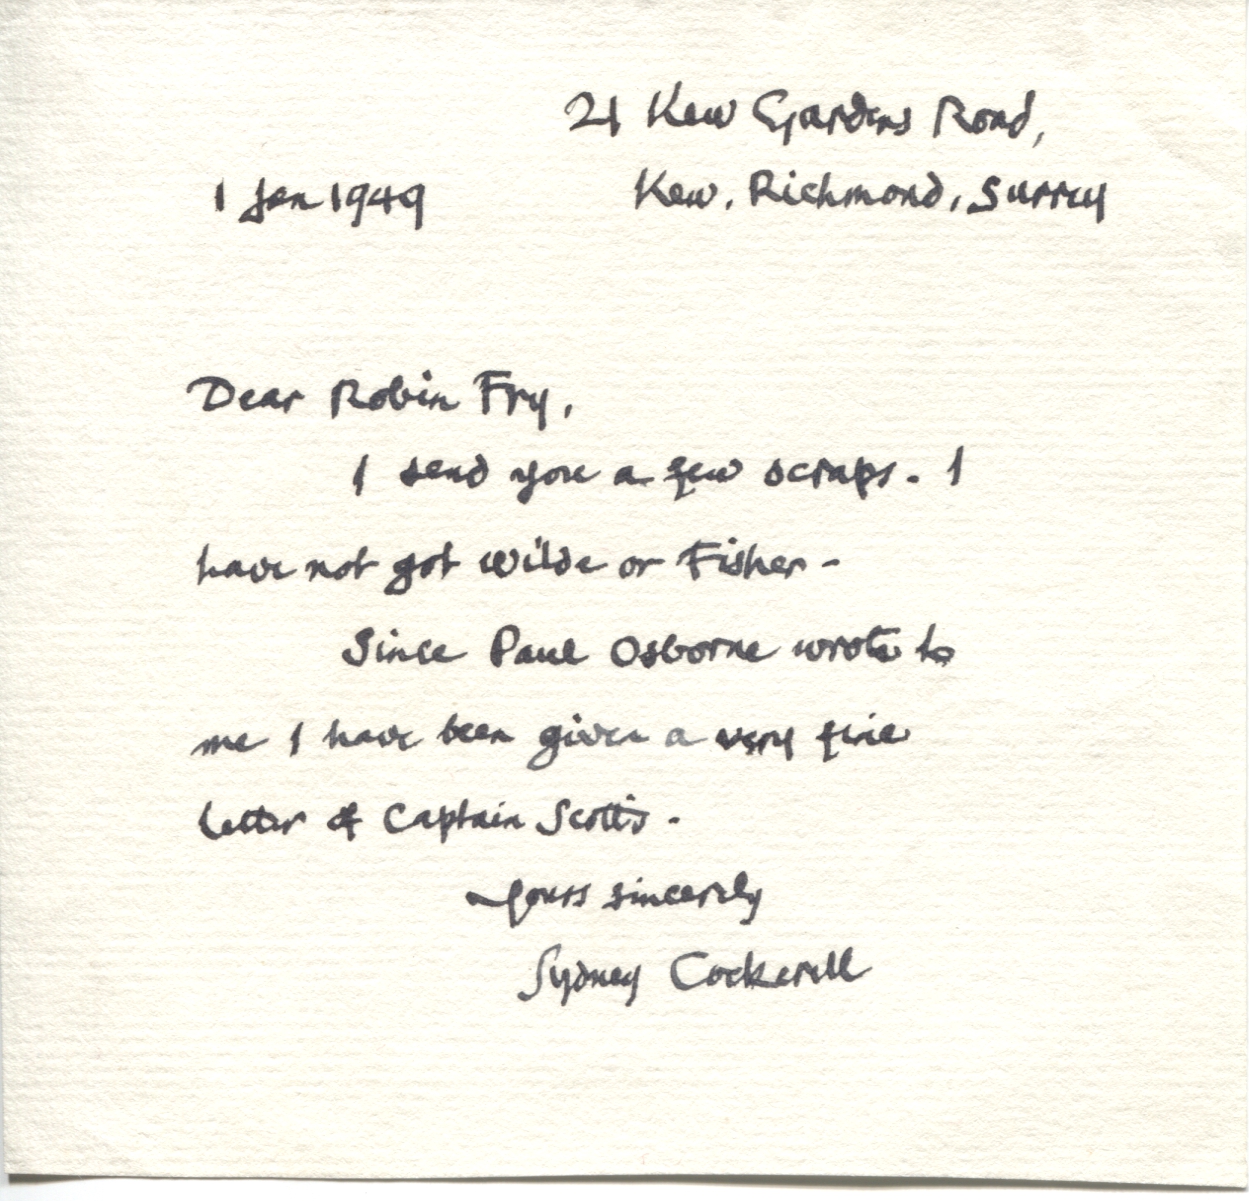 21 Kew Gardens Road,
1 Jan 1949 Kew. Richmond, Surrey
Dear Robin Fry,
I send you a few scraps. I
have not got Wilde or Fisher -
Since Paul Osborne wrote to
me I have been given a very fine
letter of Captain Scott's.
Yours sincerely
Sydney Cockerell